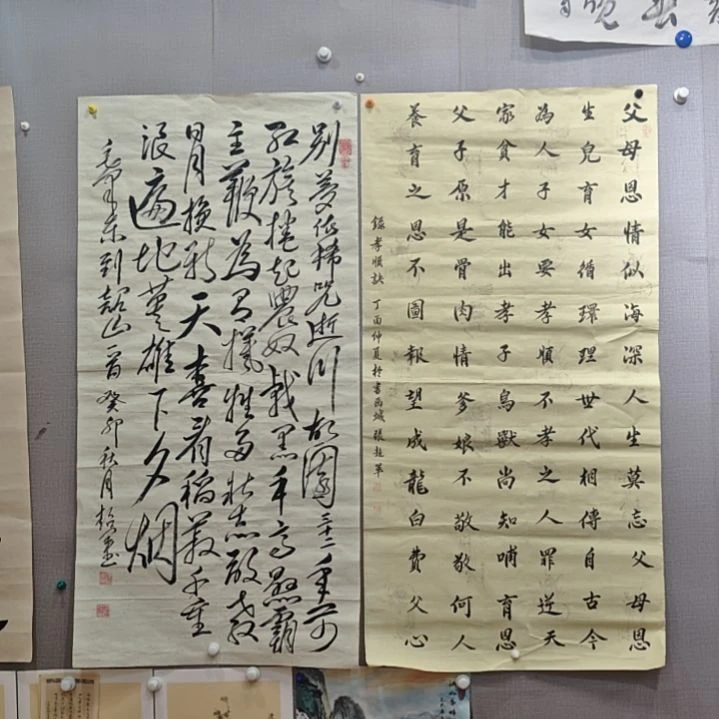 父母恩情似海深人生莫忘父母恩
生兒育女循環理世代相傳自古今
為人子女要孝順不孝之人罪逆天
家貧才能出孝子鳥獸尚知哺育恩
父子原是骨肉情爹娘不敬敬何人
養育之恩不圖報望成龍白費父心
錄孝順訣 丁酉仲夏於書画城
别梦依稀咒逝川故園三十二年前
红旗捲起農奴戟黑手高懸霸
主鞭為有犧牲多壯志敢教
日月換新天喜看稻菽千重
浪遍地英雄下夕烟
毛澤東到韶山一首 癸卯秋月